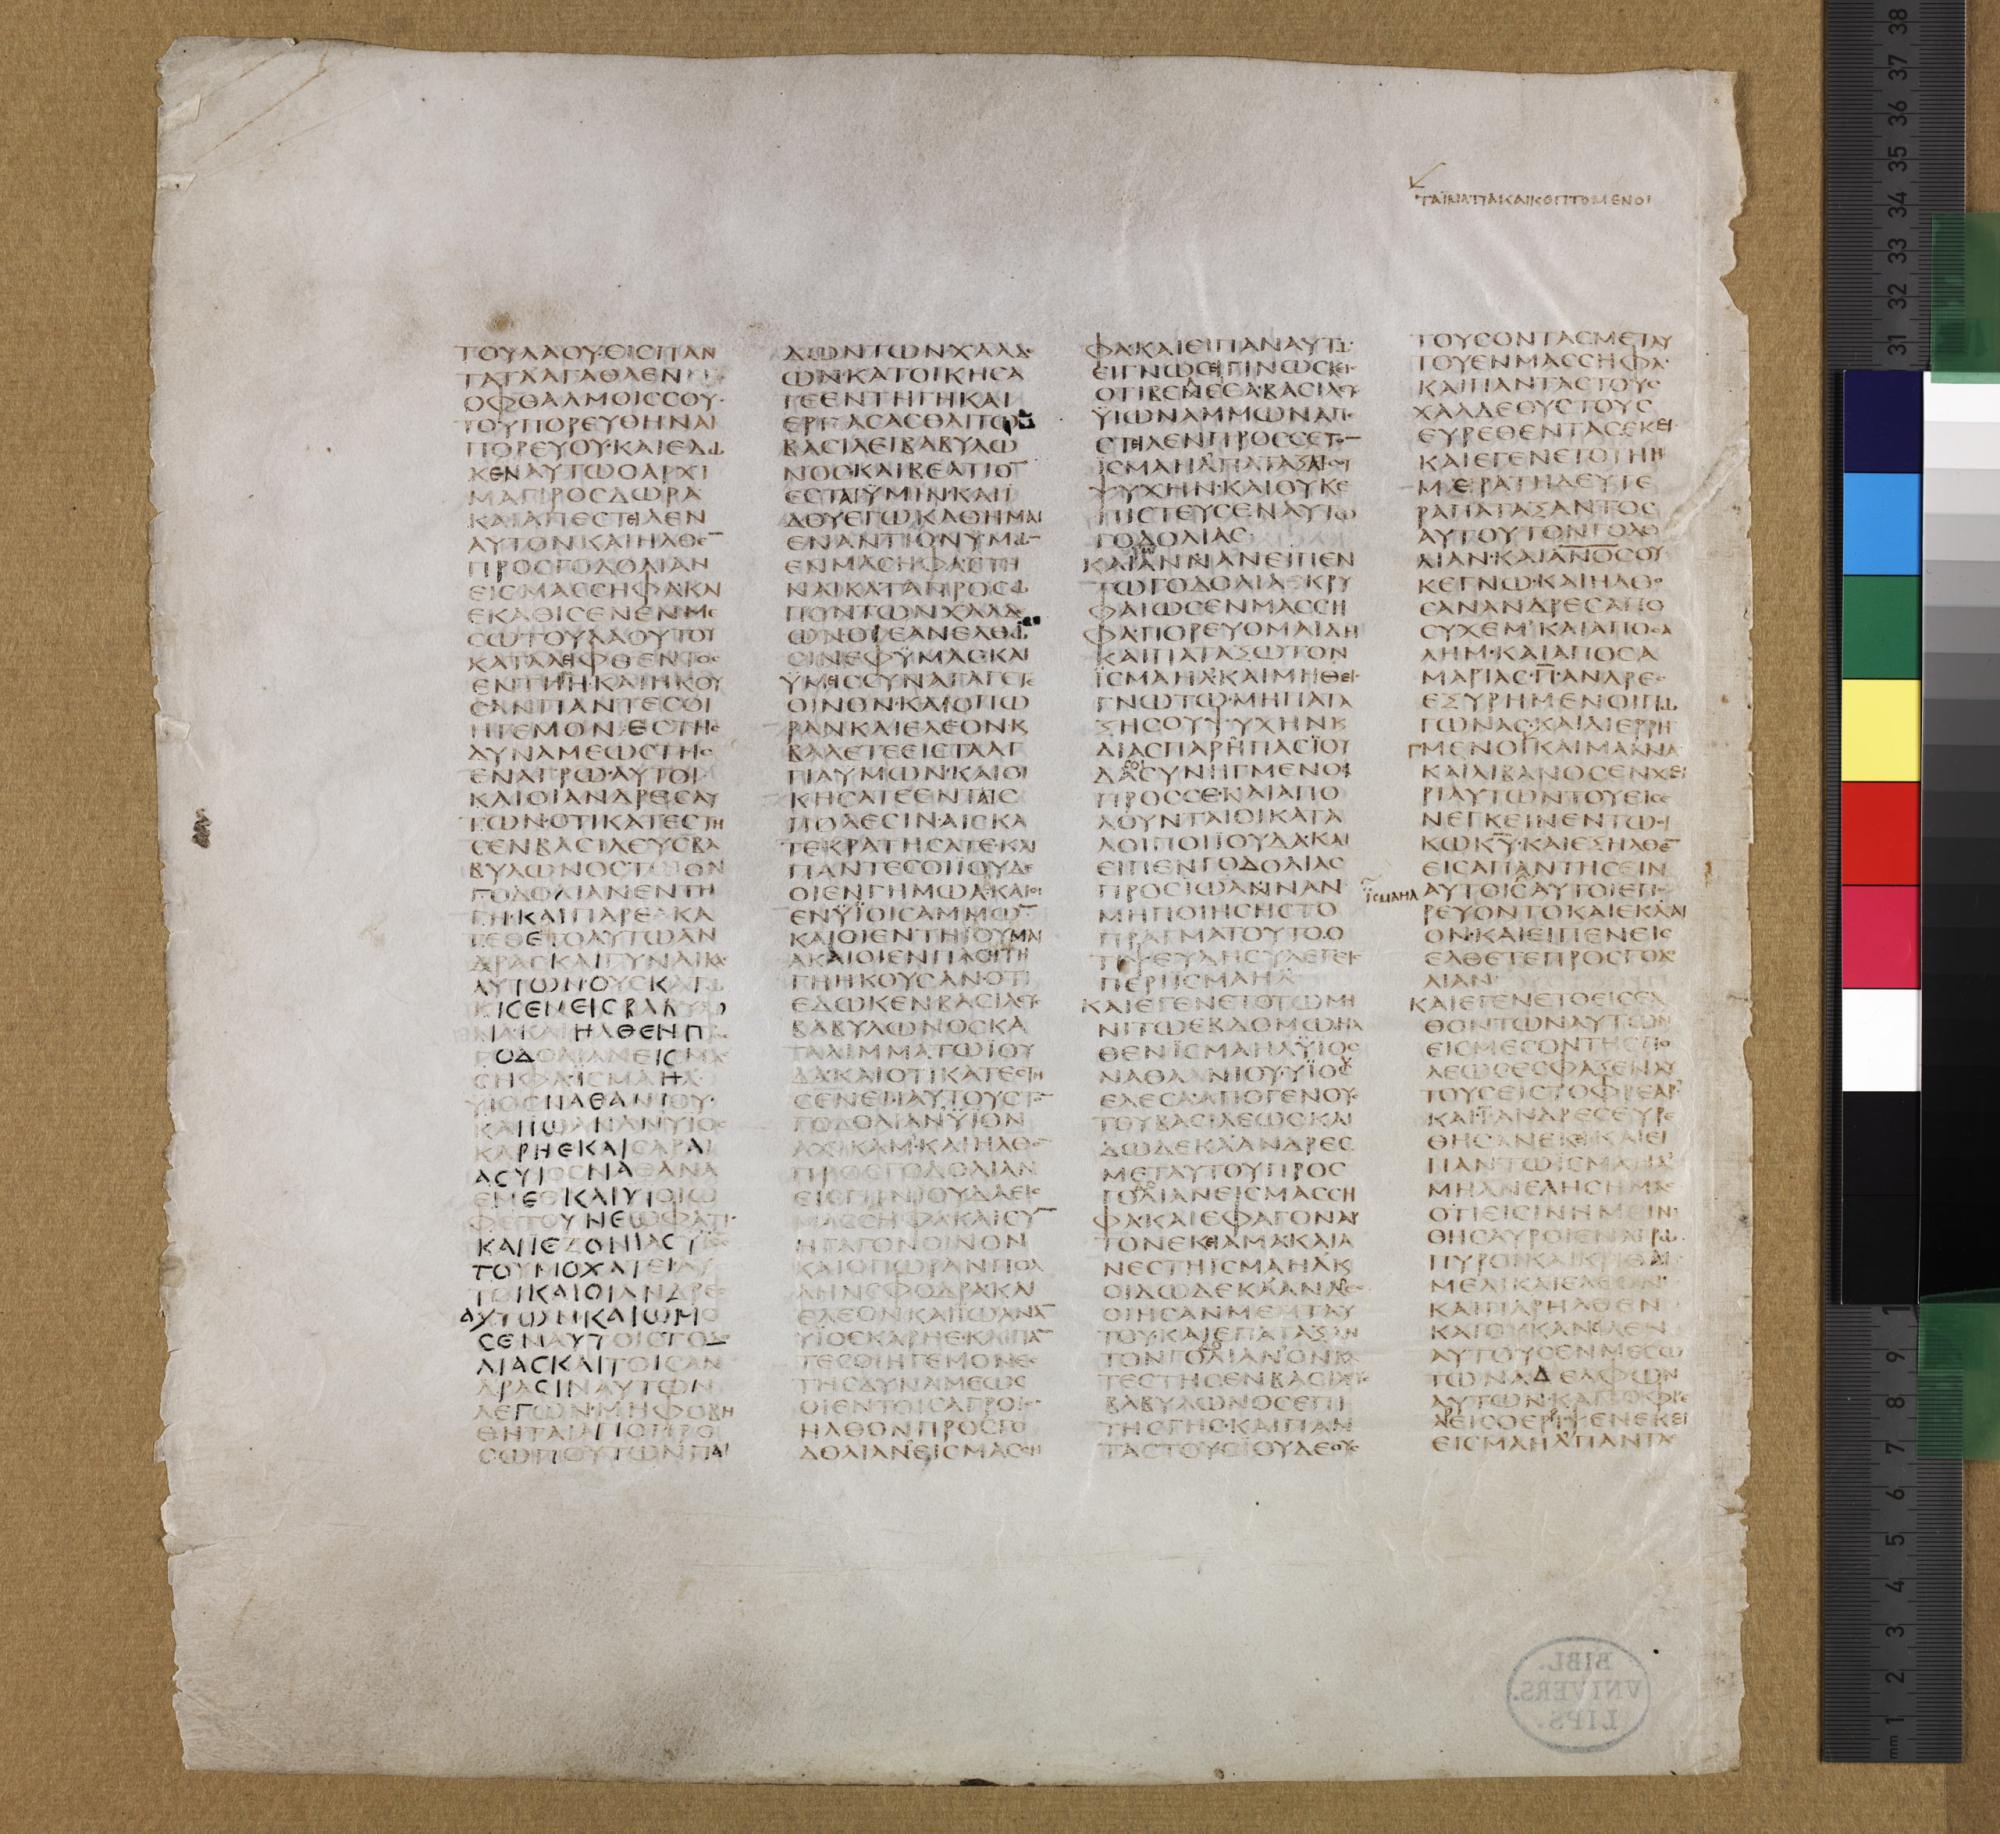 ΤΑΪΜΑΤΙΑΚΑΙΚΟΠΤΟΜΕΝΟΙ
ΤΟΥΛΑΟΥ·ΕΙΣΠΑΝ
ΤΑΤΑΑΓΑΘΑΕΝ
ΟΦΘΑΛΜΟΙΣΣΟΥ·
ΤΟΥΠΟΡΕΥΘΗΝΑΙ
ΠΟΡΕΥΟΥ·ΚΑΙΕΔΩ
ΚΕΝΑΥΤΩΟΑΡΧΙ
ΜΑΓΙΡΟΣΔΩΡΑ
ΚΑΙΑΠΕΣΤΙΛΕΝ
ΑΥΤΟΝ·ΚΑΙΗΛΘΕ¯
ΠΡΟΣΓΟΔΟΛΙΑΝ
ΕΙΣΜΑΣΣΗΦΑΚΑΙ
ΕΚΑΘΙΣΕΝΕΝΜΕ
ΣΩΤΟΥΛΑΟΥΤΟΥ
ΚΑΤΑΛΙΦΘΕΝΤΟΣ
ΕΝΤΗΓΗ·ΚΑΙΗΚΟΥ
ΣΑΝΠΑΝΤΕΣΟΙ
ΗΓΕΜΟΝΕΣΤΗΣ
ΔΥΝΑΜΕΩΣΤΗΣ
ΕΝΑΓΡΩ·ΑΥΤΟΙ
ΚΑΙΟΙΑΝΔΡΕΣΑΥ
ΤΩΝ·ΟΤΙΚΑΤΕΣΤΗ
ΣΕΝΒΑΣΙΛΕΥΣΒΑ
ΒΥΛΩΝΟΣΤΟΝ
ΓΟΔΟΛΙΑΝΕΝΤΗ
ΓΗ·ΚΑΙΠΑΡΕΚΑ
ΤΕΘΕΤΟΑΥΤΩΑΝ
ΔΡΑΣΚΑΙΓΥΝΑΙΚΑΣ
ΑΥΤΩΝ·ΟΥΣΚΑΤΩ
ΚΙΣΕΝΕΙΣΒΑΒΥΛΩ
ΝΙΑ·ΚΑΙΗΛΘΕΝΠΡΟΣ
ΓΟΔΟΛΙΑΝΕΙΣΜΑΣ
ΣΗΦΑ·ΪΣΜΑΗΛ·
ΥΙΟΣΝΑΘΑΝΙΟΥ·
ΚΑΙΪΩΑΝΑΝΥΙΟΣ
ΚΑΡΗΕΚΑΙΣΑΡΑΙ
ΑΣΥΙΟΣΝΑΘΑΝΑ
ΕΜΕΘΚΑΙΥΙΟΙΩ
ΦΕΤΟΥΝΕΩΦΑΤΙ·
ΚΑΙΪΕΖΟΝΙΑΣΥΪΟΣ
ΤΟΥΜΟΧΑΤΕΙΑΥ
ΤΟΙΚΑΙΟΙΑΝΔΡΕΣ
ΑΥΤΩΝ·ΚΑΙΩΜΟ
ΣΕΝΑΥΤΟΙΣΓΟΔΟ
ΛΙΑΣΚΑΙΤΟΙΣΑΝ
ΔΡΑΣΙΝΑΥΤΩΝ
ΛΕΓΩΝ·ΜΗΦΟΒΗ
ΘΗΤΑΙΑΠΟΠΡΟ
ΣΩΠΟΥΤΩΝΠΑΙ
ΔΩΝΤΩΝΧΑΛΔΑΙ
ΩΝ·ΚΑΤΟΙΚΗΣΑ
ΤΕΕΝΤΗΓΗΚΑΙ
ΕΡΓΑΣΑΣΘΑΙΤΩ
ΒΑΣΙΛΕΙΒΑΒΥΛΩ
ΝΟΣ·ΚΑΙΒΕΛΤΙΟΝ
ΕΣΤΑΙΫΜΙΝ·ΚΑΙΪ
ΔΟΥΕΓΩΚΑΘΗΜΑΙ
ΕΝΑΝΤΙΟΝΥΜΩ¯
ΕΝΜΑΣΗΦΑΣΤΗ
ΝΑΙΚΑΤΑΠΡΟΣΩ
ΠΟΝΤΩΝΧΑΛΔΑΙ
ΩΝΟΙΕΑΝΕΛΘΩ
ΣΙΝΕΦΫΜΑΣΚΑΙ
ΫΜΕΙΣΣΥΝΑΓΑΓΕΤΕ
ΟΙΝΟΝ·ΚΑΙΟΠΩ
ΡΑΝΚΑΙΕΛΕΟΝΚ
ΒΑΛΕΤΕΕΙΣΤΑΑΓ
ΓΙΑΥΜΩΝ·ΚΑΙΟΙ
ΚΗΣΑΤΕΕΝΤΑΙΣ
ΠΟΛΕΣΙΝ·ΑΙΣΚΑ
ΤΕΚΡΑΤΗΣΑΤΕΚΑΙ
ΠΑΝΤΕΣΟΙΪΟΥΔΑΙ
ΟΙΕΝΓΗΜΩΑ·ΚΑΙΟΙ
ΕΝΫΪΟΙΣΑΜΜΩ¯
ΚΑΙΟΙΕΝΤΗΪΟΥΜΑΙ
ΑΚΑΙΟΙΕΝΠΑΣΗΤΗ
ΓΗΗΚΟΥΣΑΝ·ΟΤΙ
ΕΔΩΚΕΝΒΑΣΙΛΕΥΣ
ΒΑΒΥΛΩΝΟΣΚΑ
ΤΑΛΙΜΜΑΤΩΪΟΥ
ΔΑΚΑΙΟΤΙΚΑΤΕΣΤΗ
ΣΕΝΕΠΑΥΤΟΥΣΤΟ¯
ΓΟΔΟΛΙΑΝΫΪΟΝ
ΑΧΙΚΑΜ·ΚΑΙΗΛΘΟ¯
ΠΡΟΣΓΟΔΟΛΙΑΝ
ΕΙΣΓΗΝΪΟΥΔΑΕΙΣ
ΜΑΣΣΗΦΑΚΑΙΣΥ¯
ΗΓΑΓΟΝΟΙΝΟΝ
ΚΑΙΟΠΩΡΑΝΠΟΛ
ΛΗΝΣΦΟΔΡΑ·ΚΑΙ
ΕΛΕΟΝ·ΚΑΙΪΩΑΝΑ¯
ΫΪΟΣΚΑΡΗΕ·ΚΑΙΠΑ¯
ΤΕΣΟΙΗΓΕΜΟΝΕΣ
ΤΗΣΔΥΝΑΜΕΩΣ
ΟΙΕΝΤΟΙΣΑΓΡΟΙΣ·
ΗΛΘΟΝΠΡΟΣΓΟ
ΔΟΛΙΑΝΕΙΣΜΑΣΣΗ
ΦΑΚΑΙΕΙΠΑΝΑΥΤΩ·
ΕΙΓΝΩΣΕΙΓΙΝΩΣΚΕΙΣ·
ΟΤΙΒΕΜΕΣΑ·ΒΑΣΙΛΕΥΣ
ΫΙΩΝΑΜΜΩΝΑΠΕ
ΣΤΙΛΕΝΠΡΟΣΣΕΤΟ¯
ΪΣΜΑΗΛΠΑΤΑΞΑΙΣΟΥ
ΨΥΧΗΝ·ΚΑΙΟΥΚΕ
ΠΙΣΤΕΥΣΕΝΑΥΤΩ
ΓΟΔΟΛΙΑΣ
ΚΑΙΑΝΝΑΝΕΙΠΕΝ
ΤΩΓΟΔΟΛΙΑ·ΚΡΥ
ΦΑΙΩΣΕΝΜΑΣΣΗ
ΦΑ·ΠΟΡΕΥΟΜΑΙΔΗ
ΚΑΙΠΑΤΑΞΩΤΟΝ
ΪΣΜΑΗΛ·ΚΑΙΜΗΘΕΙΣ
ΓΝΩΤΩ·ΜΗΠΑΤΑ
ΞΗΣΟΥΨΥΧΗΝΚ
ΔΙΑΣΠΑΡΗΠΑΣΪΟΥ
ΔΑΣΥΝΗΓΜΕΝΟΙ
ΠΡΟΣΣΕ·ΚΑΙΑΠΟ
ΛΟΥΝΤΑΙΟΙΚΑΤΑ
ΛΟΙΠΟΙΪΟΥΔΑΚΑΙ
ΕΙΠΕΝΓΟΔΟΛΙΑΣ
ΠΡΟΣΙΩΑΝΝΑΝ
ΜΗΠΟΙΗΣΗΣΤΟ
ΠΡΑΓΜΑΤΟΥΤΟ·Ο
ΤΙΨΕΥΔΗΣΥΛΕΓΕΙΣ
ΠΕΡΙΪΣΜΑΗΛ
ΚΑΙΕΓΕΝΕΤΟΤΩΜΗ
ΝΙΤΩΕΒΔΟΜΩΗΛ
ΘΕΝΪΣΜΑΗΛΫΙΟΣ
ΝΑΘΑΝΙΟΥ·ΥΪΟΥ
ΕΛΕΣΑ·ΑΠΟΓΕΝΟΥΣ
ΤΟΥΒΑΣΙΛΕΩΣΚΑΙ
ΔΩΔΕΚΑΑΝΔΡΕΣ
ΜΕΤΑΥΤΟΥΠΡΟΣ
ΓΟΛΙΑΝΕΙΣΜΑΣΣΗ
ΦΑ·ΚΑΙΕΦΑΓΟΝΑΥ
ΤΟΝΕΚΙΑΜΑ·ΚΑΙΑ
ΝΕΣΤΗΪΣΜΑΗΛΚ
ΟΙΔΩΔΕΚΑΑΝΔΡΕΣ
ΟΙΗΣΑΝΜΕΤΑΥ
ΤΟΥ·ΚΑΙΕΠΑΤΑΞΑΝ
ΤΟΝΓΟΛΙΑΝΟΝΚΑ
ΤΕΣΤΗΣΕΝΒΑΣΙΛΕΥΣ
ΒΑΒΥΛΩΝΟΣΕΠΙ
ΤΗΣΓΗΣ·ΚΑΙΠΑΝ
ΤΑΣΤΟΥΣΪΟΥΔΕΟΥΣ
ΤΟΥΣΟΝΤΑΣΜΕΤΑΥ
ΤΟΥΕΝΜΑΣΣΗΦΑ·
ΚΑΙΠΑΝΤΑΣΤΟΥΣ
ΧΑΛΔΕΟΥΣΤΟΥΣ
ΕΥΡΕΘΕΝΤΑΣΕΚΕΙ·
ΚΑΙΕΓΕΝΕΤΟΤΗΗ
ΜΕΡΑΤΗΔΕΥΤΕ
ΡΑΠΑΤΑΞΑΝΤΟΣ
ΑΥΤΟΥΤΟΝΓΟΔΟ
ΛΙΑΝ·ΚΑΙΑΝΟΣΟΥ
ΚΕΓΝΩ·ΚΑΙΗΛΘΟ
ΣΑΝΑΝΔΡΕΣΑΠΟ
ΣΥΧΕΜ·ΚΑΙΑΠΟΣΑ
ΛΗΜ·ΚΑΙΑΠΟΣΑ
ΜΑΡΙΑΣ·Π·ΑΝΔΡΕΣ
ΕΞΥΡΗΜΕΝΟΙΠΩ
ΓΩΝΑΣ·ΚΑΙΔΙΕΡΡΗ
ΓΜΕΝΟΙΚΑΙΜΑΝΝΑ
ΚΑΙΛΙΒΑΝΟΣΕΝΧΕΙ
ΡΙΑΥΤΩΝΤΟΥΕΙΣΕ
ΝΕΓΚΕΙΝΕΝΤΩΟΙ
ΚΩΚΥ·ΚΑΙΕΞΗΛΘΕ¯
ΕΙΣΑΠΑΝΤΗΣΕΙΝ
ΪΣΜΑΗΛ
ΑΥΤΟΙΣΑΥΤΟΙΕΠΟ
ΡΕΥΟΝΤΟΚΑΙΕΚΛΑΙ
ΟΝ·ΚΑΙΕΙΠΕΝΕΙΣ
ΕΛΘΕΤΕΠΡΟΣΓΟΔ
ΛΙΑΝ·
ΚΑΙΕΓΕΝΕΤΟΕΙΣΕΛ
ΘΟΝΤΩΝΑΥΤΩΝ
ΕΙΣΜΕΣΟΝΤΗΣΠΟ
ΛΕΩΣΕΣΦΑΞΕΝΑΥ
ΤΟΥΣΕΙΣΤΟΦΡΕΑΡ·
ΚΑΙΪΑΝΔΡΕΣΕΥΡΕ
ΘΗΣΑΝΕΚΙΚΑΙΕΙ
ΠΑΝΤΩΪΣΜΑΗΛ
ΜΗΑΝΕΛΗΣΗΜΑΣ
ΟΤΙΕΙΣΙΝΗΜΕΙΝ
ΘΗΣΑΥΡΟΙΕΝΑΓΡΩ·
ΠΥΡΟΙΚΑΙΚΡΙΘΑΙ
ΜΕΛΙΚΑΙΕΛΕΟΝ·
ΚΑΙΠΑΡΗΛΘΕΝ
ΚΑΙΟΥΚΑΝΙΛΕΝ
ΑΥΤΟΥΣΕΝΜΕΣΩ
ΤΩΝΑΔΕΛΦΩΝ
ΑΥΤΩΝ·ΚΑΙΤΟΦΡΕ
ΑΡΕΙΣΟΕΡΙΨΕΝΕΚΕΙ
ΕΙΣΜΑΗΛΠΑΝΤΑΣ
BIBL.
VNIVERS.
LIPS.